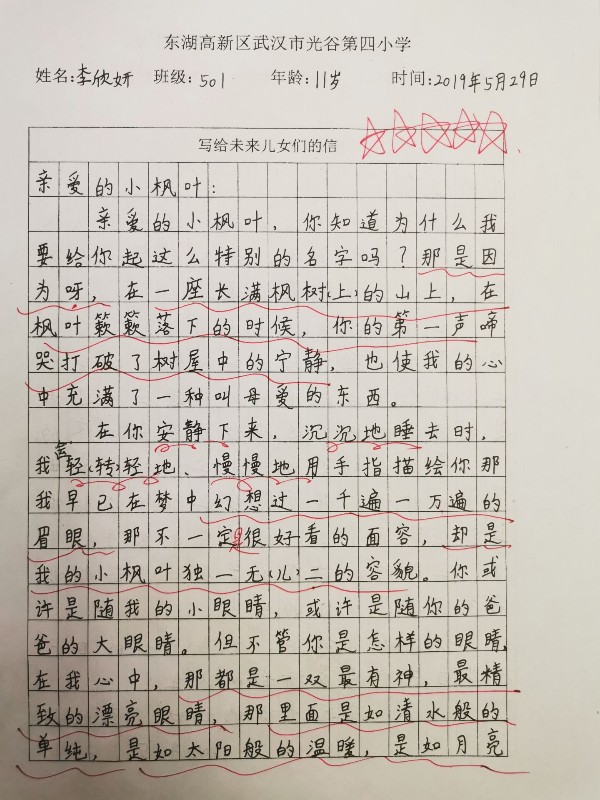 东湖高新区武汉市光谷第四小学
姓名:李欣妍 班级:501 年龄:11岁 时间:2019年5月29日
写给未来儿女们的信
亲爱的小枫叶:
亲爱的小枫叶,你知道为什么我
要给你起这么特别的名字吗?那是因
为呀,在一座长满枫树(上)的山上,在
枫叶簌簌落下的时候,你的第一声啼
哭打破了树屋中的宁静,也使我的心
中充满了一种叫母爱的东西。
在你安静下来,沉沉地睡去时,
我会轻(转)轻地、慢慢地用手指描绘你那
我早已在梦中幻想过一千遍一万遍的
眉眼,那不一定是很好看的面容,却是
我的小枫叶独一无(儿)二的容貌。你或
许是随我的小眼睛,或许是随你的爸
爸的大眼睛。但不管你是怎样的眼睛,
在我心中,那都是一双最有神,最精
致的漂亮眼睛,那里面是如清水般的
单纯,是如太阳般的温暖,是如月亮